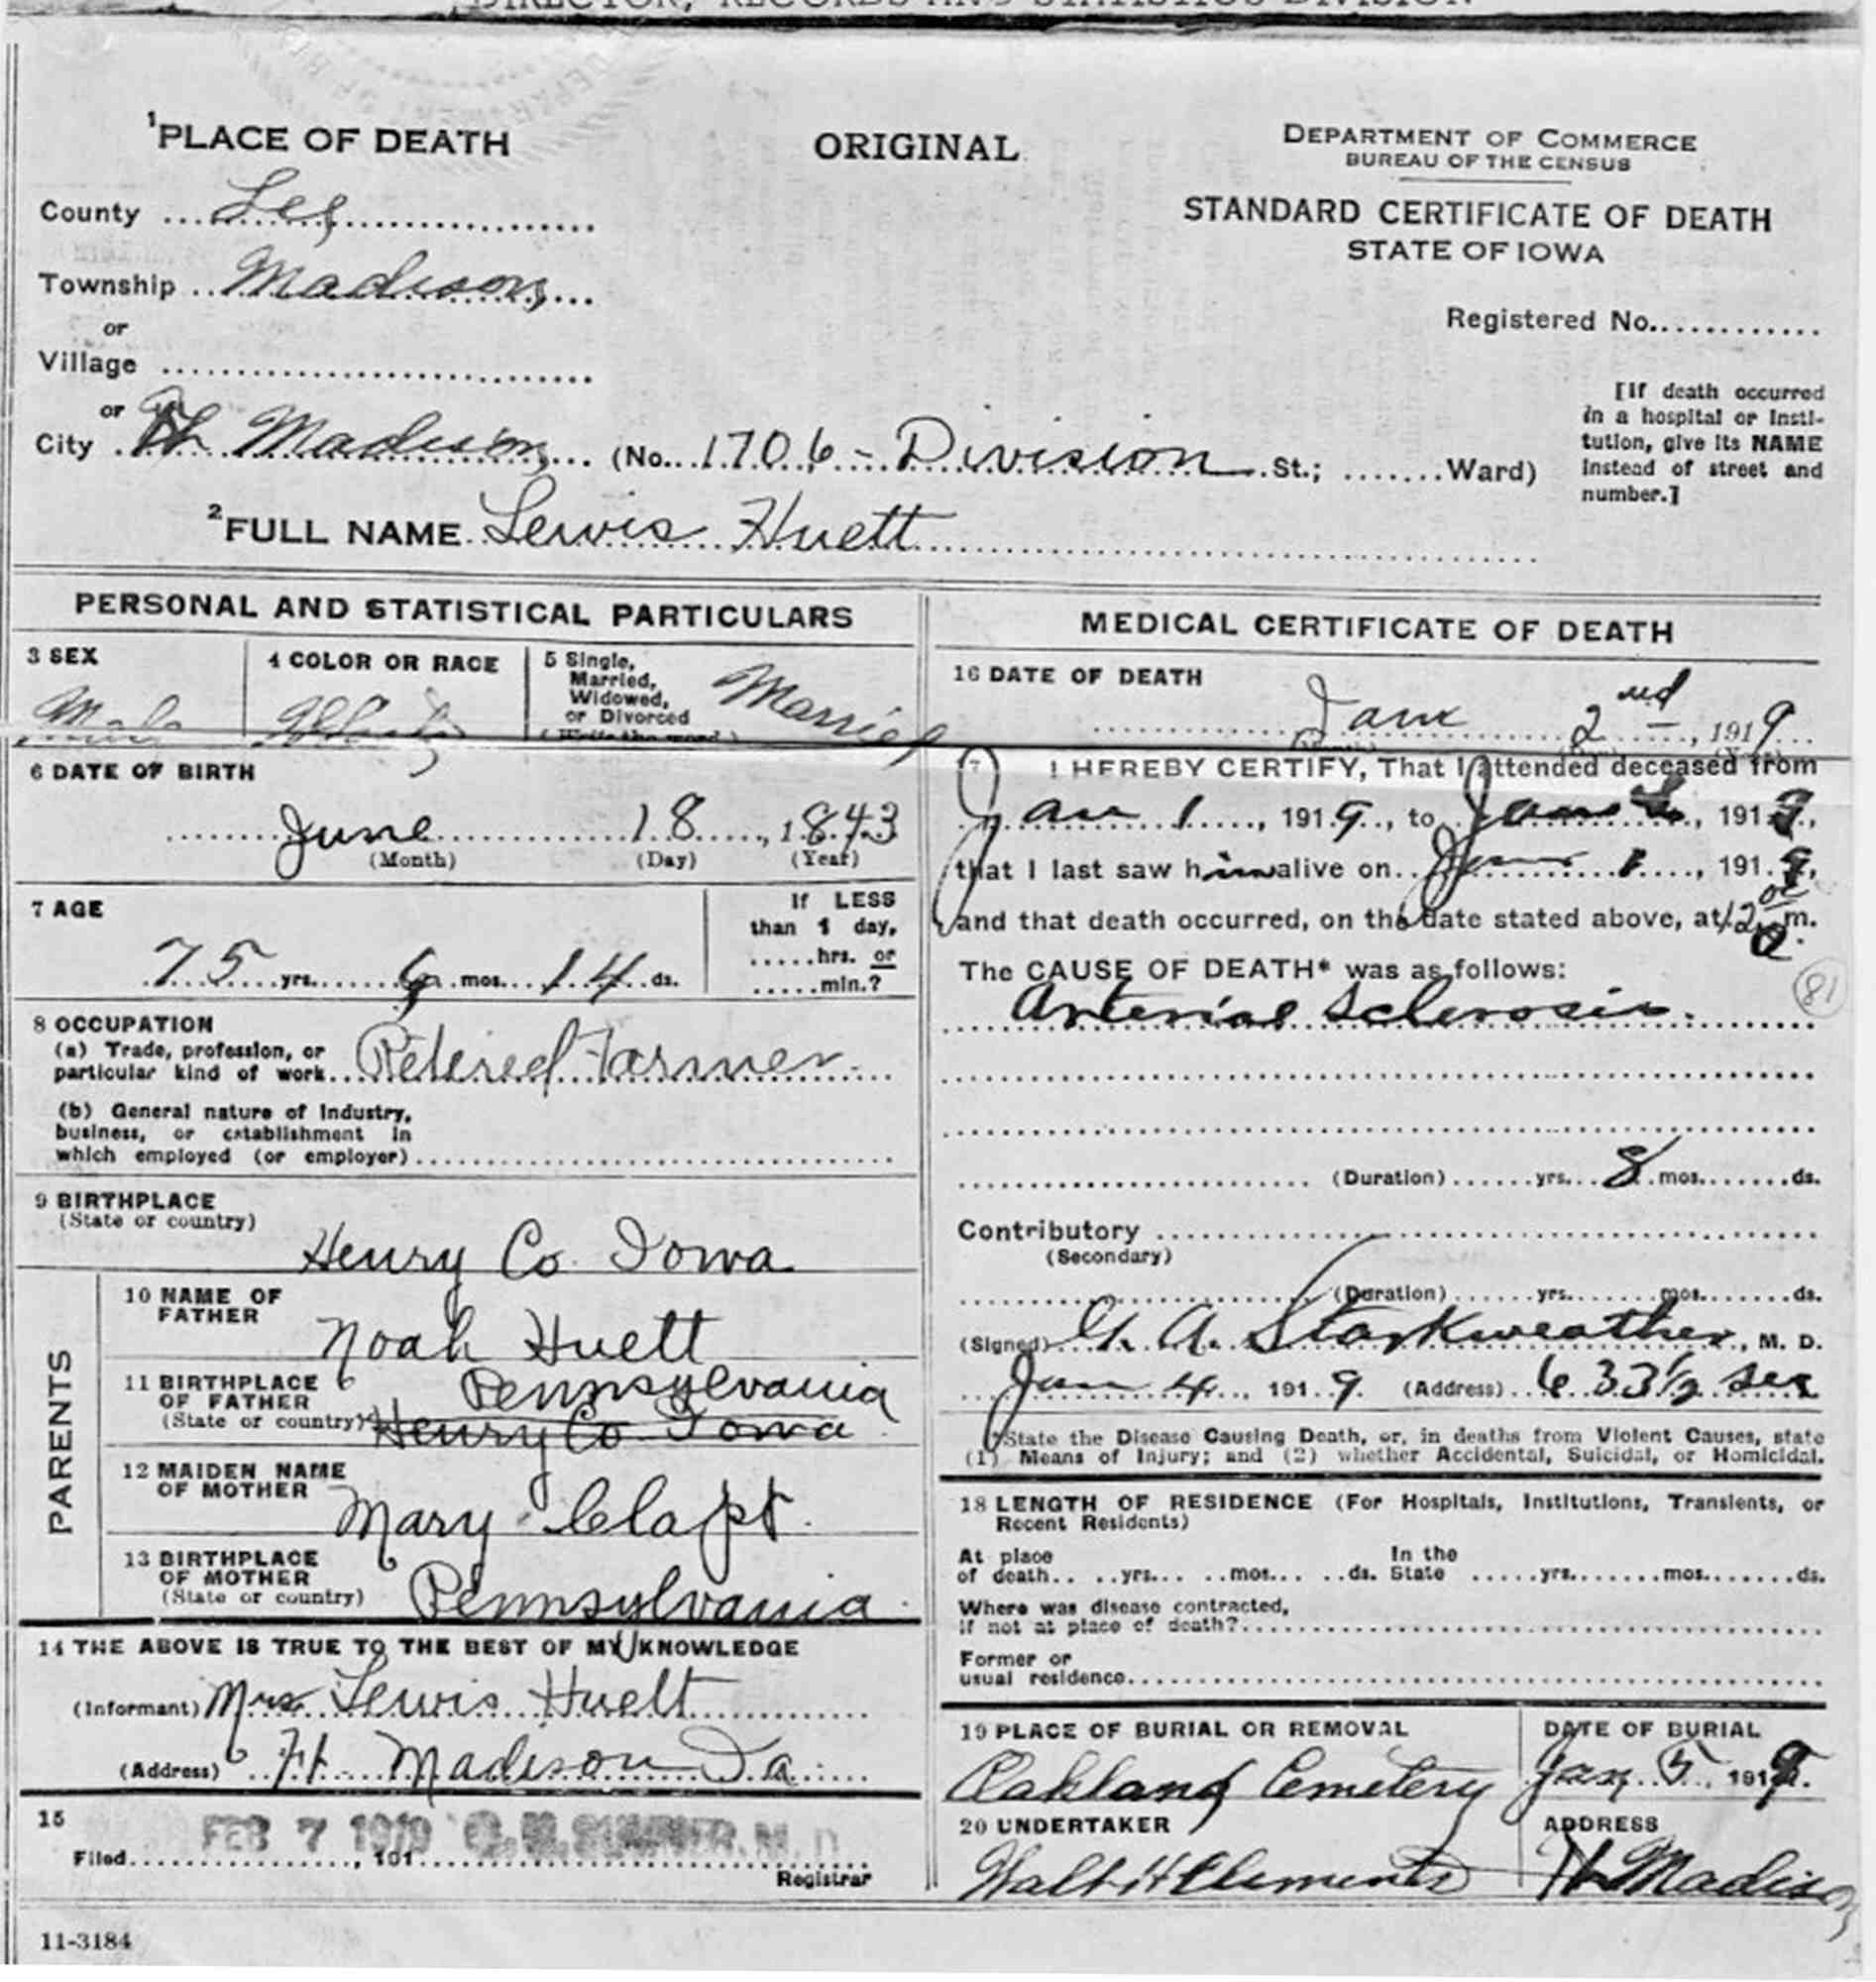 DIRECTOR, RECORDS AND STATISTICS DIVISION
1 PLACE OF DEATH
ORIGINAL
DEPARTMENT OF COMMERCE
BUREAU OF THE CENSUS
STANDARD CERTIFICATE OF DEATH
STATE OF IOWA
County Lee
Township Madison
or
Village
or
City Ft Madison (No. 1706 - Division St.; Ward)
Registered No.
[If death occurred
in a hospital or insti-
tution, give its NAME
instead of street and
number.]
2 FULL NAME Lewis Huett
PERSONAL AND STATISTICAL PARTICULARS
3 SEX
Male
4 COLOR OR RACE
White
5 Single,
Married,
Widowed,
or Divorced
(Write the word)
Married
6 DATE OF BIRTH
June 18, 1843
(Month) (Day) (Year)
7 AGE
75 yrs. 6 mos. 14 ds.
If LESS
than 1 day,
hrs. or
min.?
8 OCCUPATION
(a) Trade, profession, or
particular kind of work Retired Farmer
(b) General nature of industry,
business, or establishment in
which employed (or employer)
9 BIRTHPLACE
(State or country)
Henry Co. Iowa
PARENTS
10 NAME OF
FATHER
Noah Huett
11 BIRTHPLACE
OF FATHER
(State or country)
Pennsylvania
Henry Co Iowa
12 MAIDEN NAME
OF MOTHER
Mary
13 BIRTHPLACE
OF MOTHER
(State or country)
Pennsylvania
14 THE ABOVE IS TRUE TO THE BEST OF MY KNOWLEDGE
(Informant) Mrs. Lewis Huett
(Address) Ft. Madison Ia
15
FEB 7 1919
Filed , 191
Registrar
11-3184
MEDICAL CERTIFICATE OF DEATH
16 DATE OF DEATH
Jan 2nd, 1919
I HEREBY CERTIFY, That I attended deceased from
Jan 1, 1919, to Jan 2, 1919,
that I last saw him alive on Jan 1, 1919,
and that death occurred, on the date stated above, at 12 m.
The CAUSE OF DEATH* was as follows:
Arterial Sclerosis.
81
(Duration) yrs. 8 mos. ds.
Contributory
(Secondary)
(Duration) yrs. mos. ds.
(Signed) A. Starkweather, M. D.
Jan 4, 1919. (Address) 633 1/2
*State the Disease Causing Death, or, in deaths from Violent Causes, state
(1) Means of Injury; and (2) whether Accidental, Suicidal, or Homicidal.
18 LENGTH OF RESIDENCE (For Hospitals, Institutions, Transients, or
Recent Residents)
At place
of death yrs. mos. ds.
In the
State yrs. mos. ds.
Where was disease contracted,
if not at place of death?
Former or
usual residence
19 PLACE OF BURIAL OR REMOVAL
Oakland Cemetery
DATE OF BURIAL
Jan. 5, 1919.
20 UNDERTAKER
Walt H Clements
ADDRESS
Ft Madison